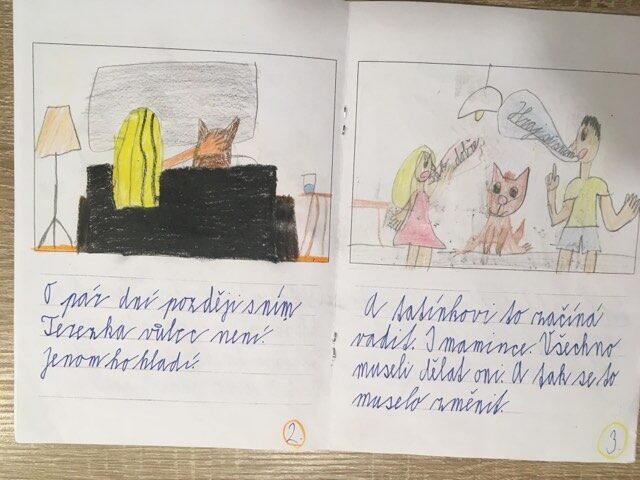 O pár dní později s ním
Terezka vůbec není.
Jenom ho hladí.
2.
A tatínkovi to začíná
vadit. I mamince. Všechno
museli dělat oni. A tak se to
muselo změnit.
3.